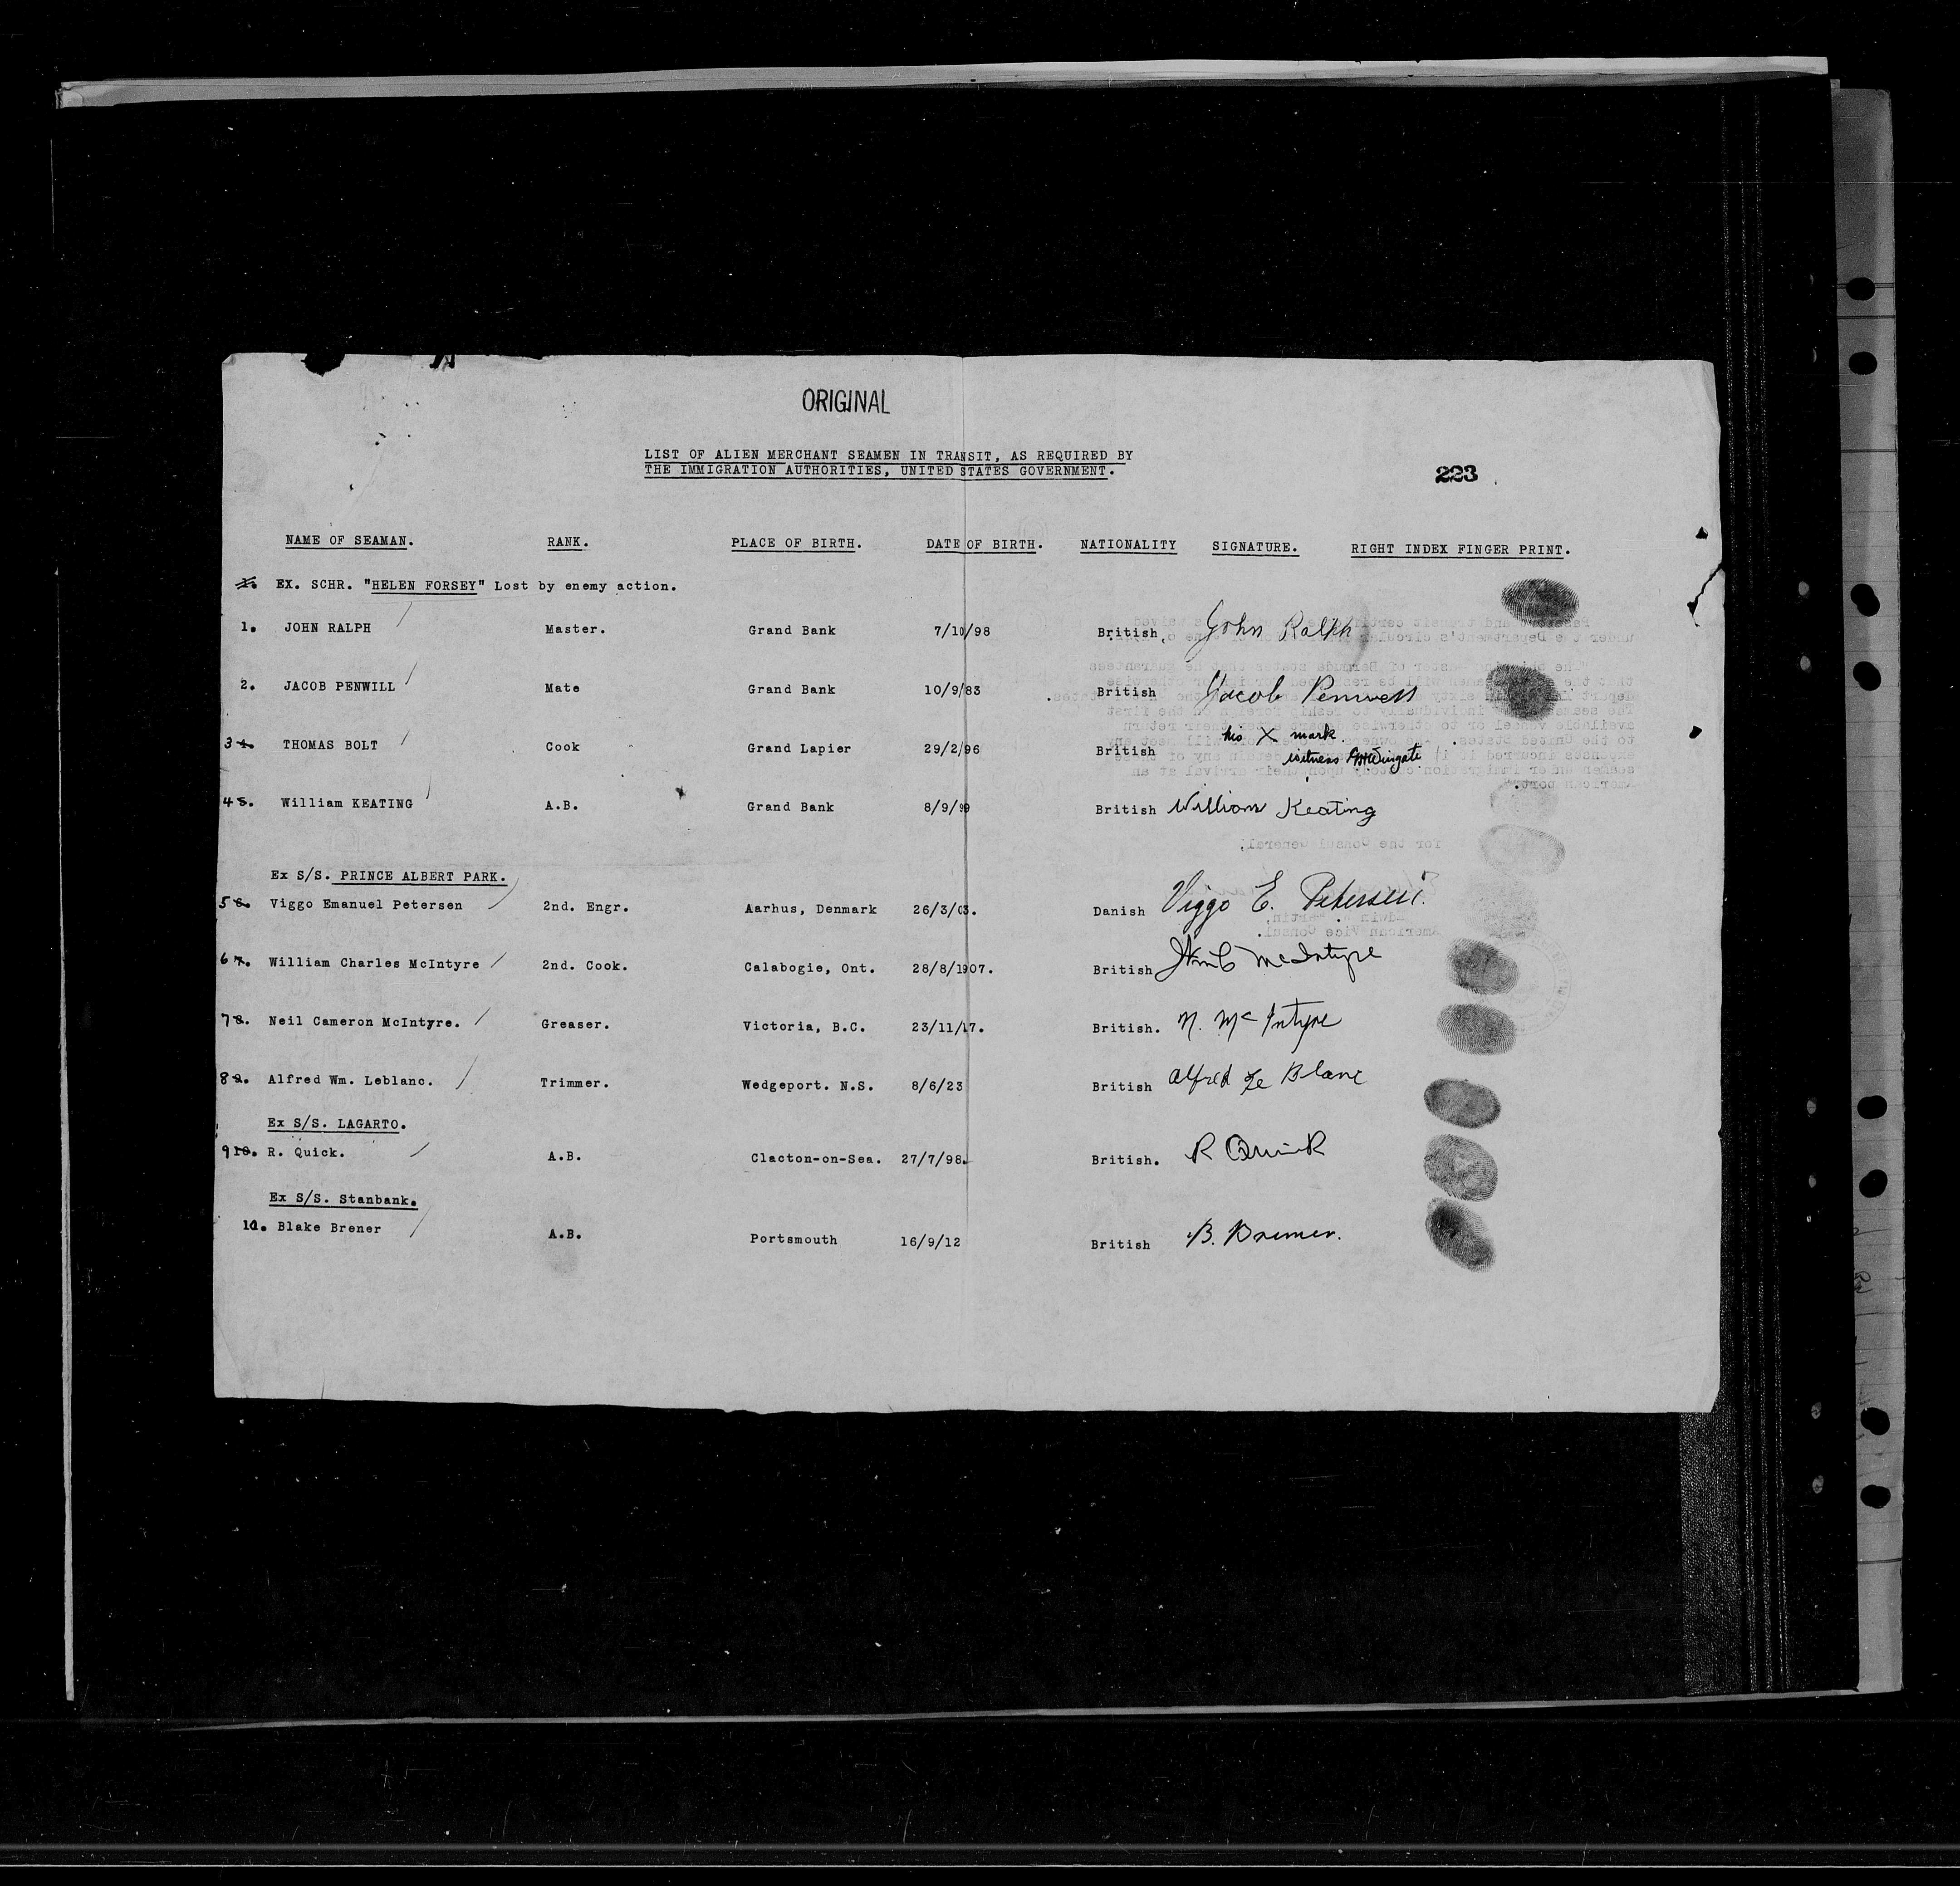 ORIGINAL
LIST OF ALIEN MERCHANT SEAMEN IN TRANSIT, AS REQUIRED BY
THE IMMIGRATION AUTHORITIES, UNITED STATES GOVERNMENT.
223
NAME OF SEAMAN. RANK. PLACE OF BIRTH. DATE OF BIRTH. NATIONALITY SIGNATURE. RIGHT INDEX FINGER PRINT.
EX. SCHR. "HELEN FORSEY" Lost by enemy action.
1. JOHN RALPH Master. Grand Bank 7/10/98 British, John Ralph
2. JACOB PENWILL Mate Grand Bank 10/9/83 British Jacob Penwell
3 4. THOMAS BOLT Cook Grand Lapier 29/2/96 British his X mark
witness Wingate
4 5. William KEATING A.B. Grand Bank 8/9/99 British William Keating
Ex S/S. PRINCE ALBERT PARK.
5 6. Viggo Emanuel Petersen 2nd. Engr. Aarhus, Denmark 26/3/03. Danish Viggo E. Petersen.
6 7. William Charles McIntyre 2nd. Cook. Calabogie, Ont. 28/8/1907. British Wm C McIntyre
7 8. Neil Cameron McIntyre. Greaser. Victoria, B.C. 23/11/17. British. N. McIntyre
8 9. Alfred Wm. Leblanc. Trimmer. Wedgeport. N.S. 8/6/23 British Alfred Le Blanc
Ex S/S. LAGARTO.
9 10. R. Quick. A.B. Clacton-on-Sea. 27/7/98. British. R Quick
Ex S/S. Stanbank.
10. Blake Brener A.B. Portsmouth 16/9/12 British B. Bremer.